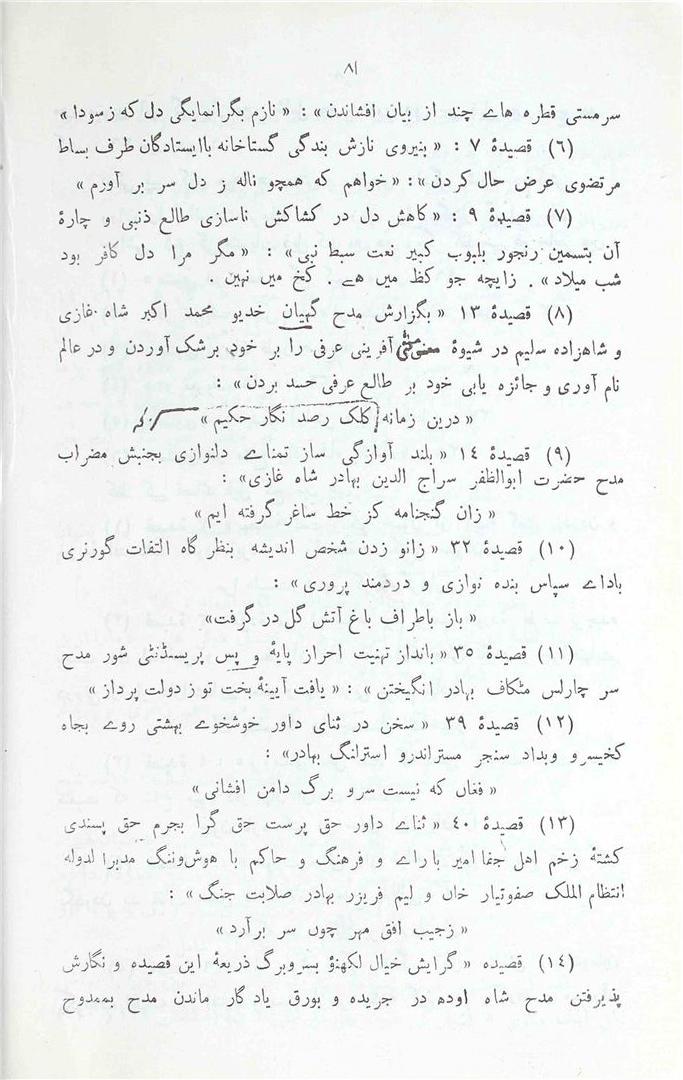 ۸۱
سرمستی قطره هاے چند از بیان افشاندن» : « نازم بگرانمایگی دل که ز سودا »
(٦) قصیدۂ ۷ : « بنیروی نازش بندگی گستاخانه باایستادگان طرف بساط
مرتضوی عرض حال کردن» : « خواهم که همچو ناله ز دل سر بر آورم »
(۷) قصیدۂ ۹ : « کاهش دل در کشاکش ناسازی طالع ذنبی و چارۂ
آن بتسمین رنجور بلبوب کبیر نعت سبط نبی» : « مگر مرا دل کافر بود
شب میلاد » . زایچه جو کظ میں هے . کخ میں نہیں .
(۸) قصیدۂ ۱۳ « بگزارش مدح گیهان خدیو محمد اکبر شاه غازی
و شاهزاده سلیم در شیوۂ معنی آفرینی عرفی را بر خود برشک آوردن و در عالم
نام آوری و جائزه یابی خود بر طالع عرفی حسد بردن» :
« درین زمانه کلک رصد نگار حکیم » که
(۹) قصیدۂ ۱٤ « بلند آوازگی ساز تمناے دلنوازی بجنبش مضراب
مدح حضرت ابوالظفر سراج الدین بهادر شاه غازی» :
« زان گنجنامه کز خط ساغر گرفته ایم »
(۱۰) قصیدۂ ۳۲ « زانو زدن شخص اندیشه بنظر گاه التفات گورنری
باداے سپاس بنده نوازی و دردمند پروری » :
« باز باطراف باغ آتش گل در گرفت»
(۱۱) قصیدۂ ۳٥ « بانداز تهنیت احراز پایۂ ویس پریسڈنٹی شور مدح
سر چارلس مٹکاف بهادر انگیختن» : « یافت آیینۂ بخت تو ز دولت پرداز »
(۱۲) قصیدۂ ۳۹ « سخن در ثنای داور خوشخوے بهشتی روے بجاه
کخیسرو وبداد سنجر مستراندرو استرلنگ بهادر» :
« فغاں که نیست سرو برگ دامن افشانی »
(۱۳) قصیدۂ ٤۰ « ثناے داور حق پرست حق گرا بجرم حق پسندی
کشتۂ زخم اهل جفا امیر باراے و فرهنگ و حاکم با هوش‌وننگ مدبرالدوله
انتظام الملک صفوتیار خاں ولیم فریزر بهادر صلابت جنگ » :
« زجیب افق مهر چوں سر برآرد »
(۱٤) قصیده « گرایش خیال لکھنؤ بسروبرگ ذریعۂ این قصیده و نگارش
پذیرفتن مدح شاه اودھ در جریده و بورق یادگار ماندن مدح بممدوح